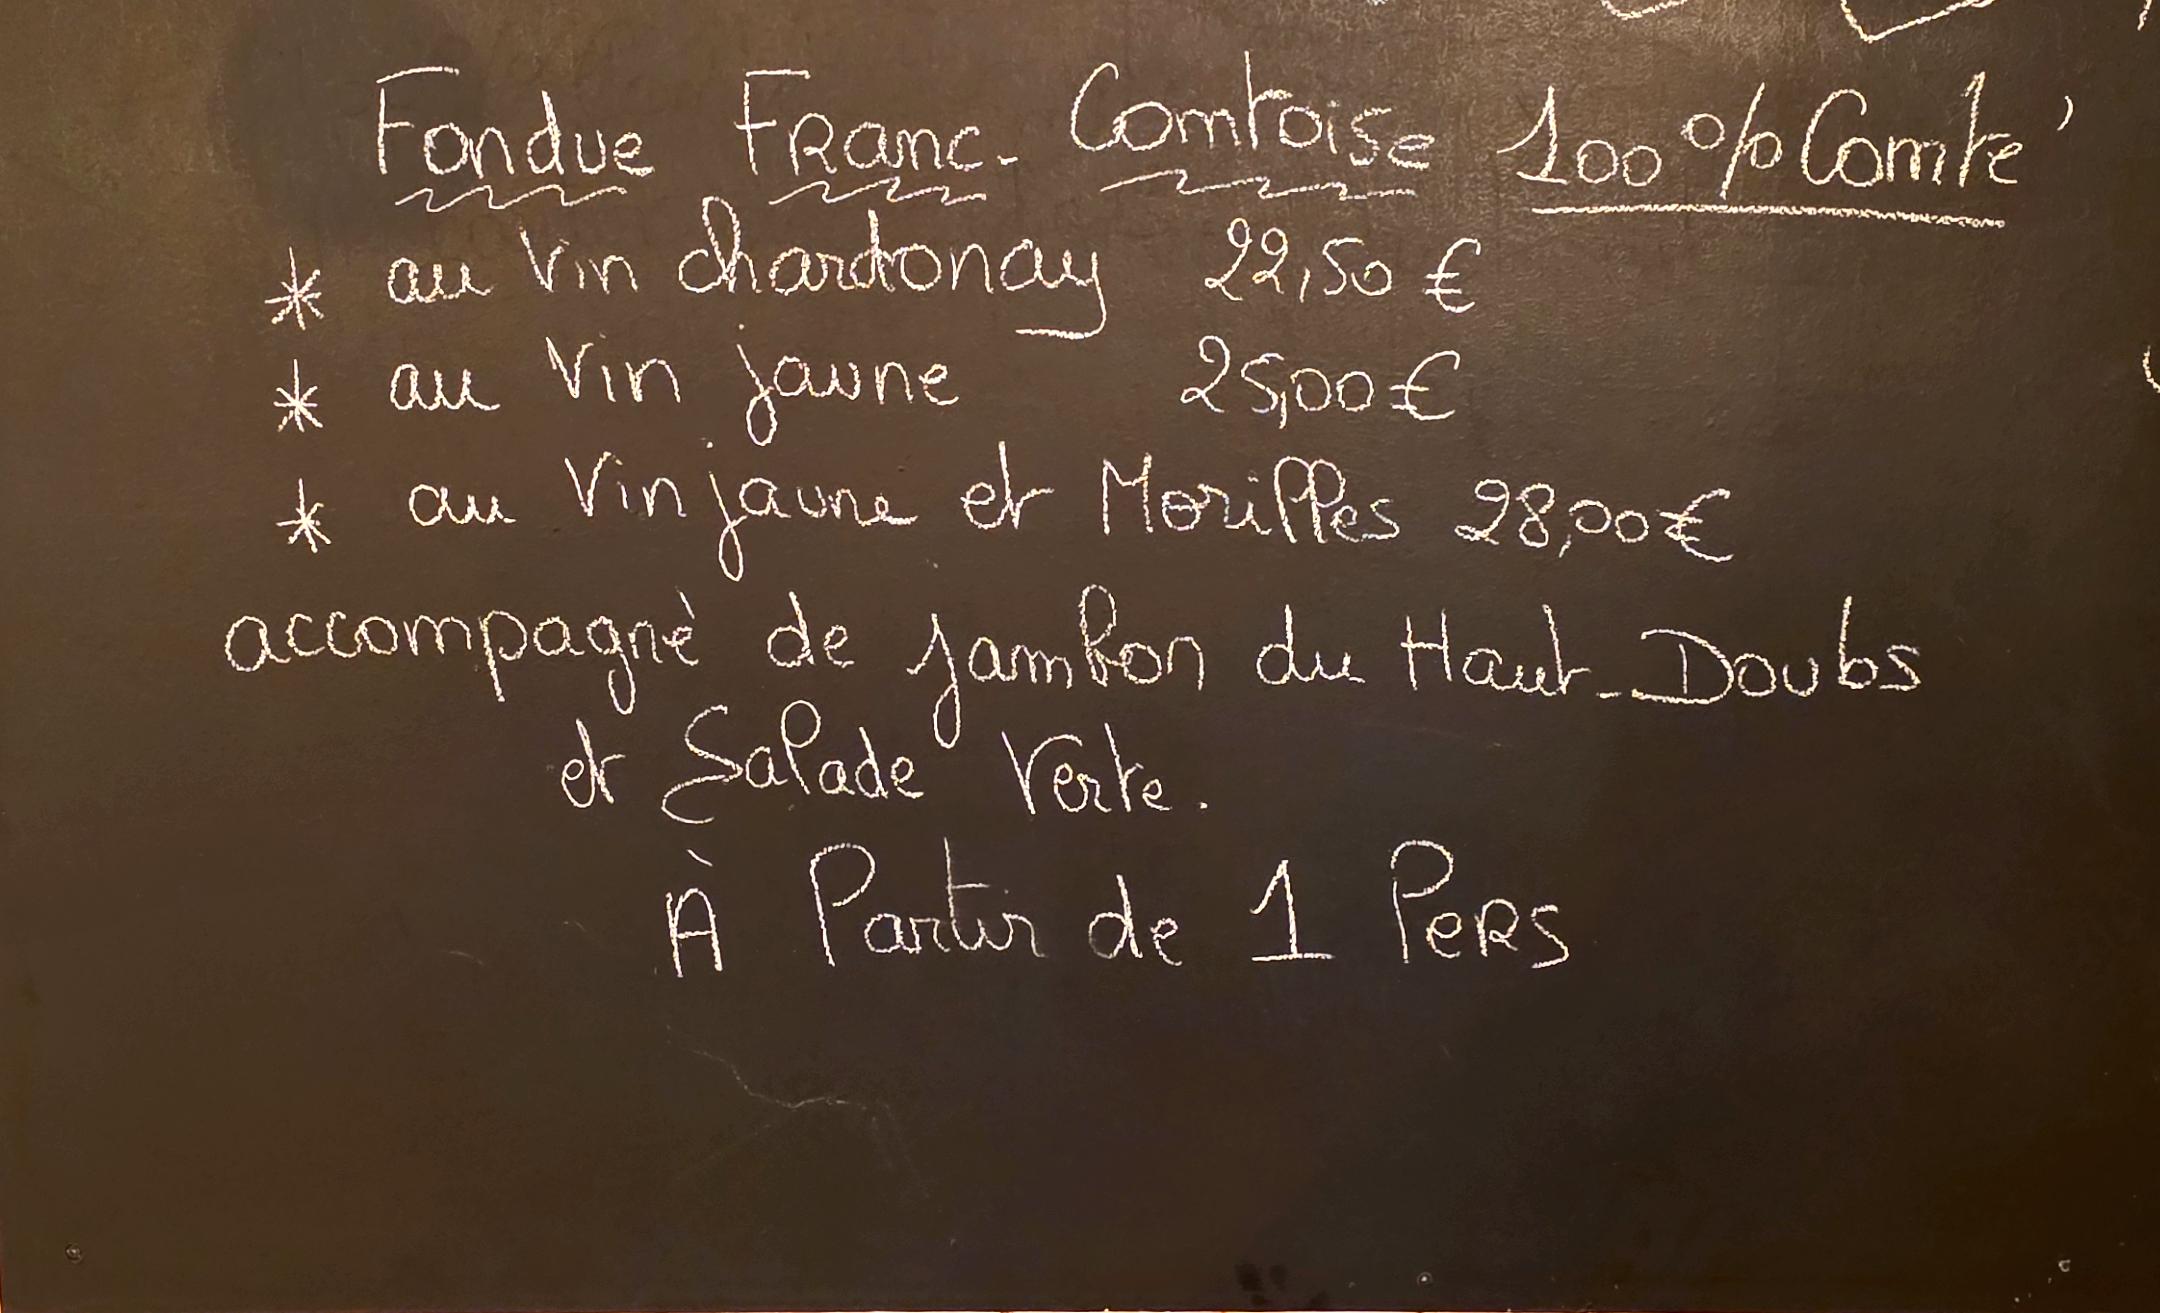 Fondue Franc-Comtoise 100% Comté
* au Vin chardonay 22,50 €
* au Vin jaune 25,00 €
* au Vin jaune et Morilles 28,00 €
accompagné de jambon du Haut-Doubs
et Salade Verte.
À Partir de 1 Pers